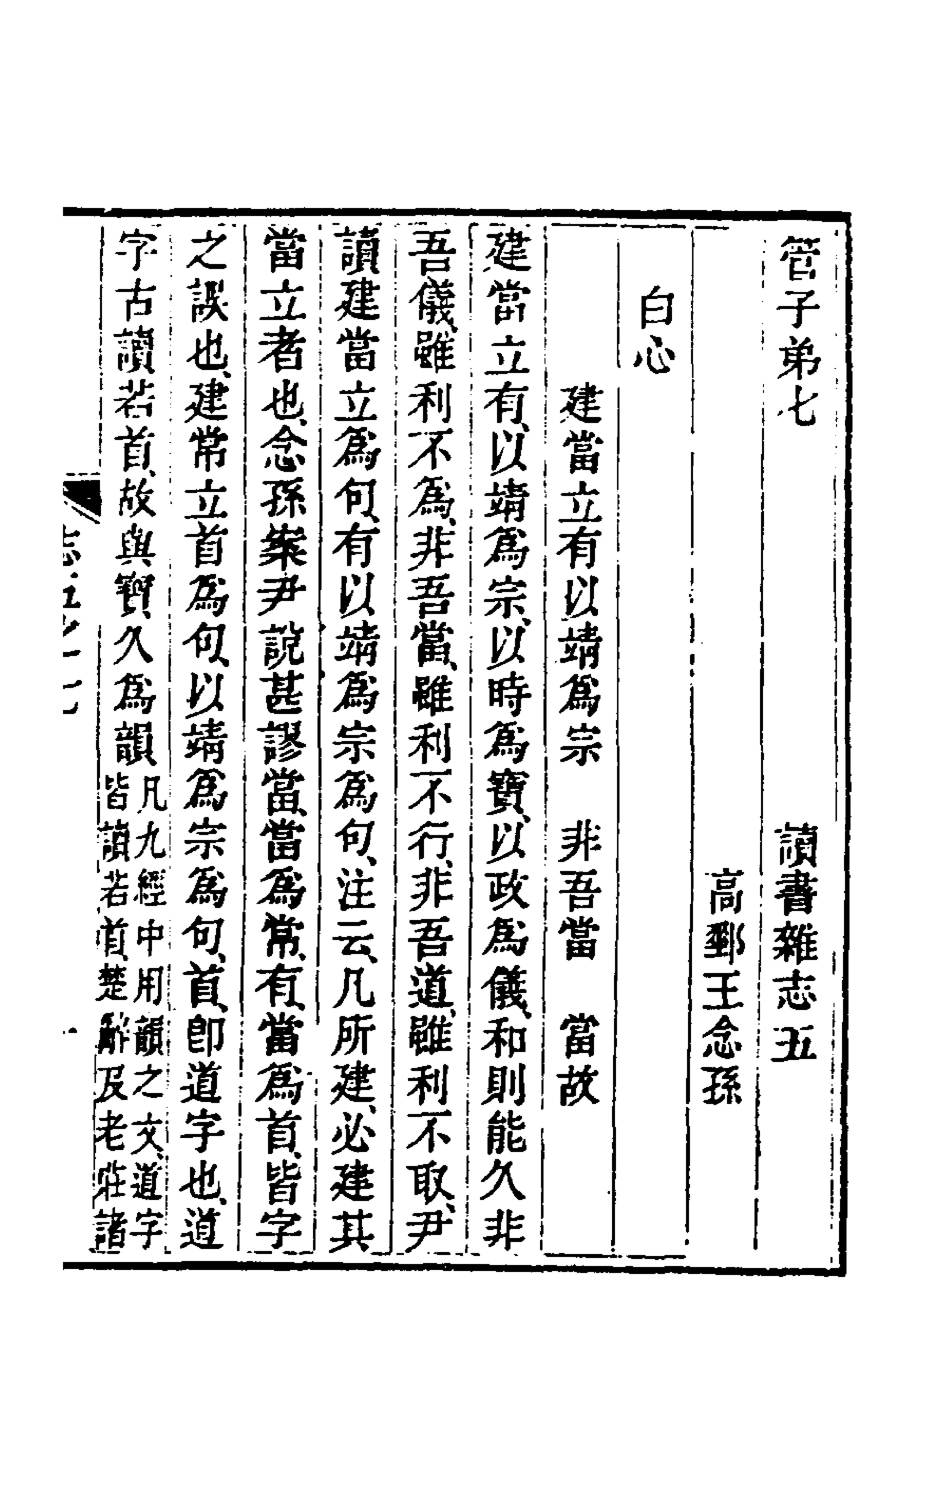 管子弟七 讀書雜志五
高郵王念孫
白心
建當立有以靖爲宗 非吾當 當故
建當立有、以靖爲宗、以時爲寶、以政爲儀、和則能久、非
吾儀、雖利不爲、非吾當、雖利不行、非吾道、雖利不取、尹
讀建當立爲句、有以靖爲宗爲句、注云、凡所建、必建其
當立者也、念孫案尹說甚謬、當當爲常、有當爲首、皆字
之誤也、建常立首爲句、以靖爲宗爲句、首、卽道字也、道
字古讀若首、故與寶久爲韻凡九經中用韻之文、道字
皆讀若首、楚辭及老莊諸
志五之七
一